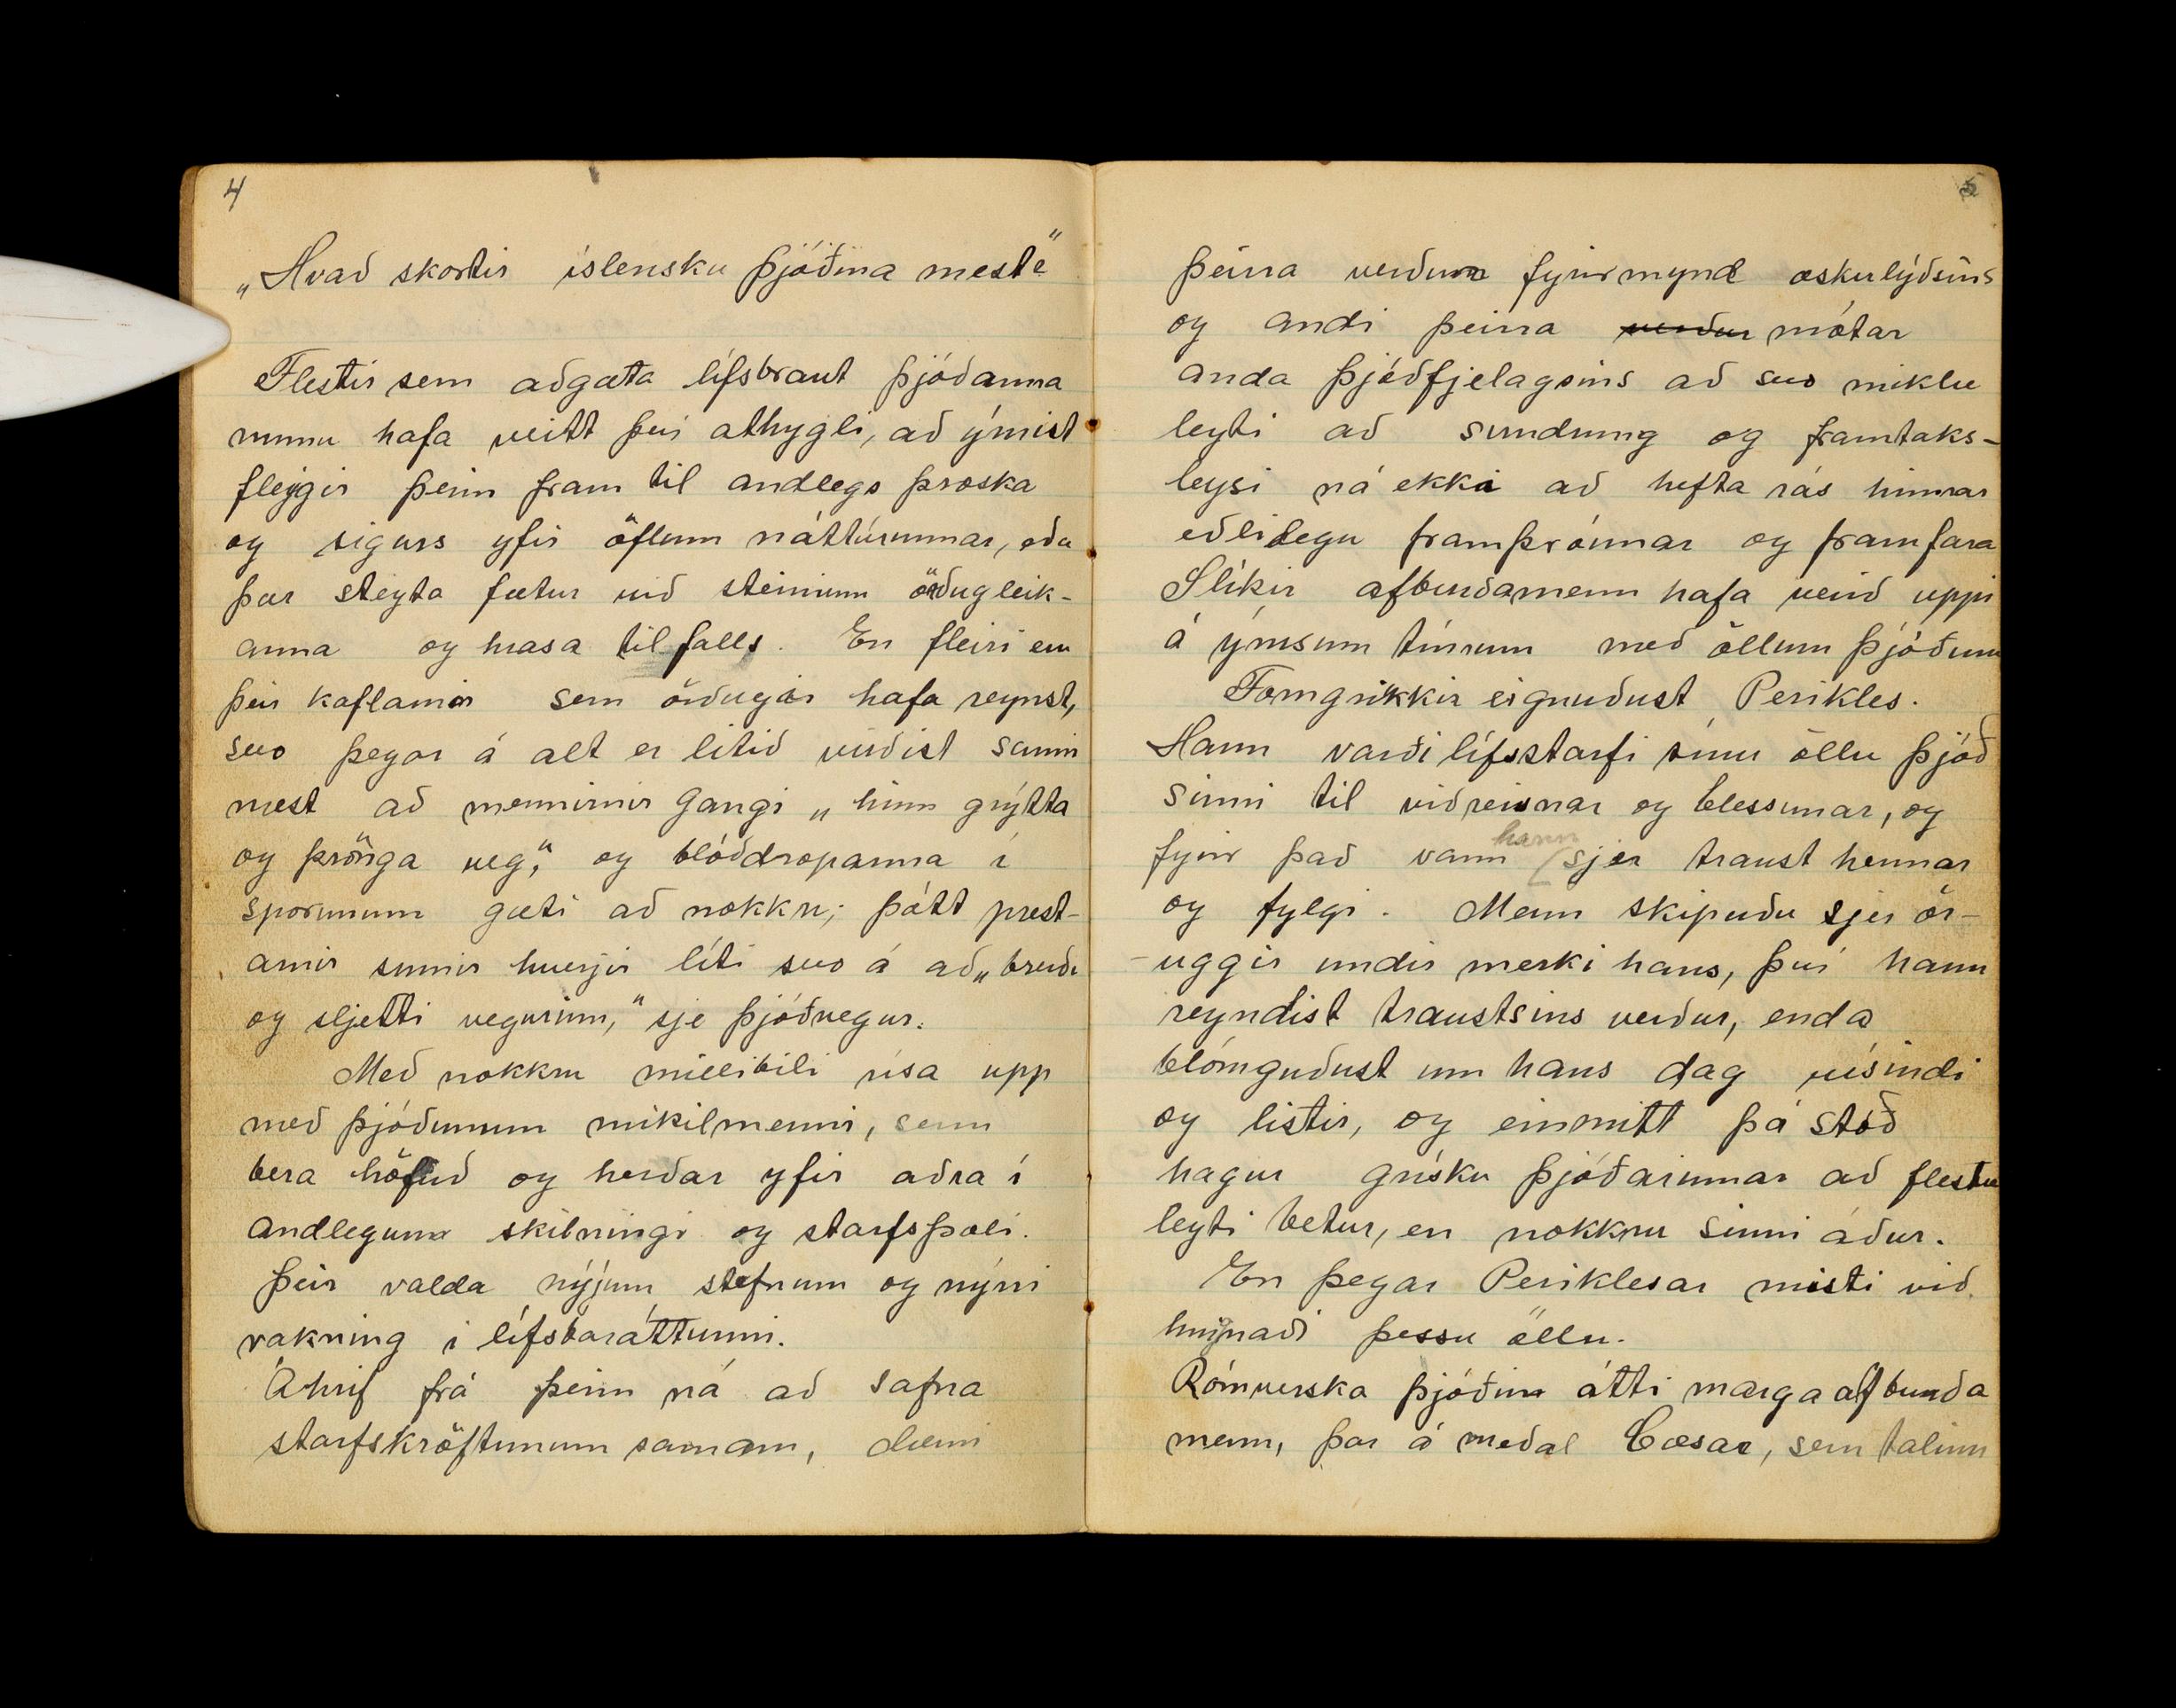 4
„Hvað skortir íslensku þjóðina mest?"
Flestir sem aðgæta lífsbraut þjóðanna
munu hafa veitt því athygli, að ýmist
fleygir þeim fram til andlegs þroska
og sigurs yfir öflum náttúrunnar, eða
þær steyta fætur við steinum örðugleik-
anna og hrasa til falls. En fleiri eru
þeir kaflarnir sem örðugir hafa reynst,
svo þegar á alt er litið virðist sanni
næst að mennirnir gangi „hinn grýtta
og þrönga veg," og blóðdropanna í
sporunum gæti að nokkru; þótt prest-
arnir sumir hverjir líti svo á að „breiði
og sljetti vegurinn," sje þjóðvegur.
Með nokkru millibili rísa upp
með þjóðunum mikilmenni, sem
bera höfuð og herðar yfir aðra í
andlegum skilningi og starfsþoli.
Þeir valda nýjum stefnum og nýrri
vakning í lífsbaráttunni.
Áhrif frá þeim ná að safna
starfskröftunum saman, dæmi
5
þeirra verðum fyrirmynd æskulýðsins
og andi þeirra verður mótar
anda þjóðfjelagsins að svo miklu
leyti að sundrung og framtaks-
leysi ná ekki að hefta rás hinnar
eðlilegu framþróunnar og framfara
Slíkir afburðamenn hafa verið uppi
á ýmsum tímum með öllum þjóðum
Forngrikkir eignuðust Perikles.
Hann varði lífsstarfi sínu öllu þjóð
sinni til viðreisnar og blessunar, og
fyrir það vann hann sjer traust hennar
og fylgi. Menn skipuðu sjer ör-
-uggir undir merki hans, því hann
reyndist traustsins verður, enda
blómguðust um hans dag vísindi
og listir, og einmitt þá stóð
hagur grísku þjóðarinnar að flestu
leyti betur, en nokkru sinni áður.
En þegar Periklesar misti við
hnignaði þessu öllu.
Rómverska þjóðin átti marga afburða
menn, þar á meðal Cæsar, sem talinn